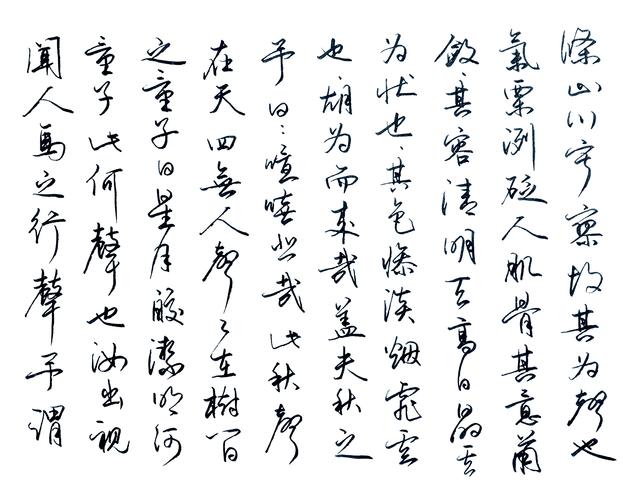 聞人馬之行聲予謂
童子此何聲也汝出視
之童子曰星月皎潔明河
在天四無人聲々在樹間
予曰噫嘻悲哉此秋聲
也胡為而來哉蓋夫秋之
為狀也其色慘淡煙霏雲
斂其容清明天高日晶其
氣栗冽砭人肌骨其意蕭
條山川寂寥故其為聲也